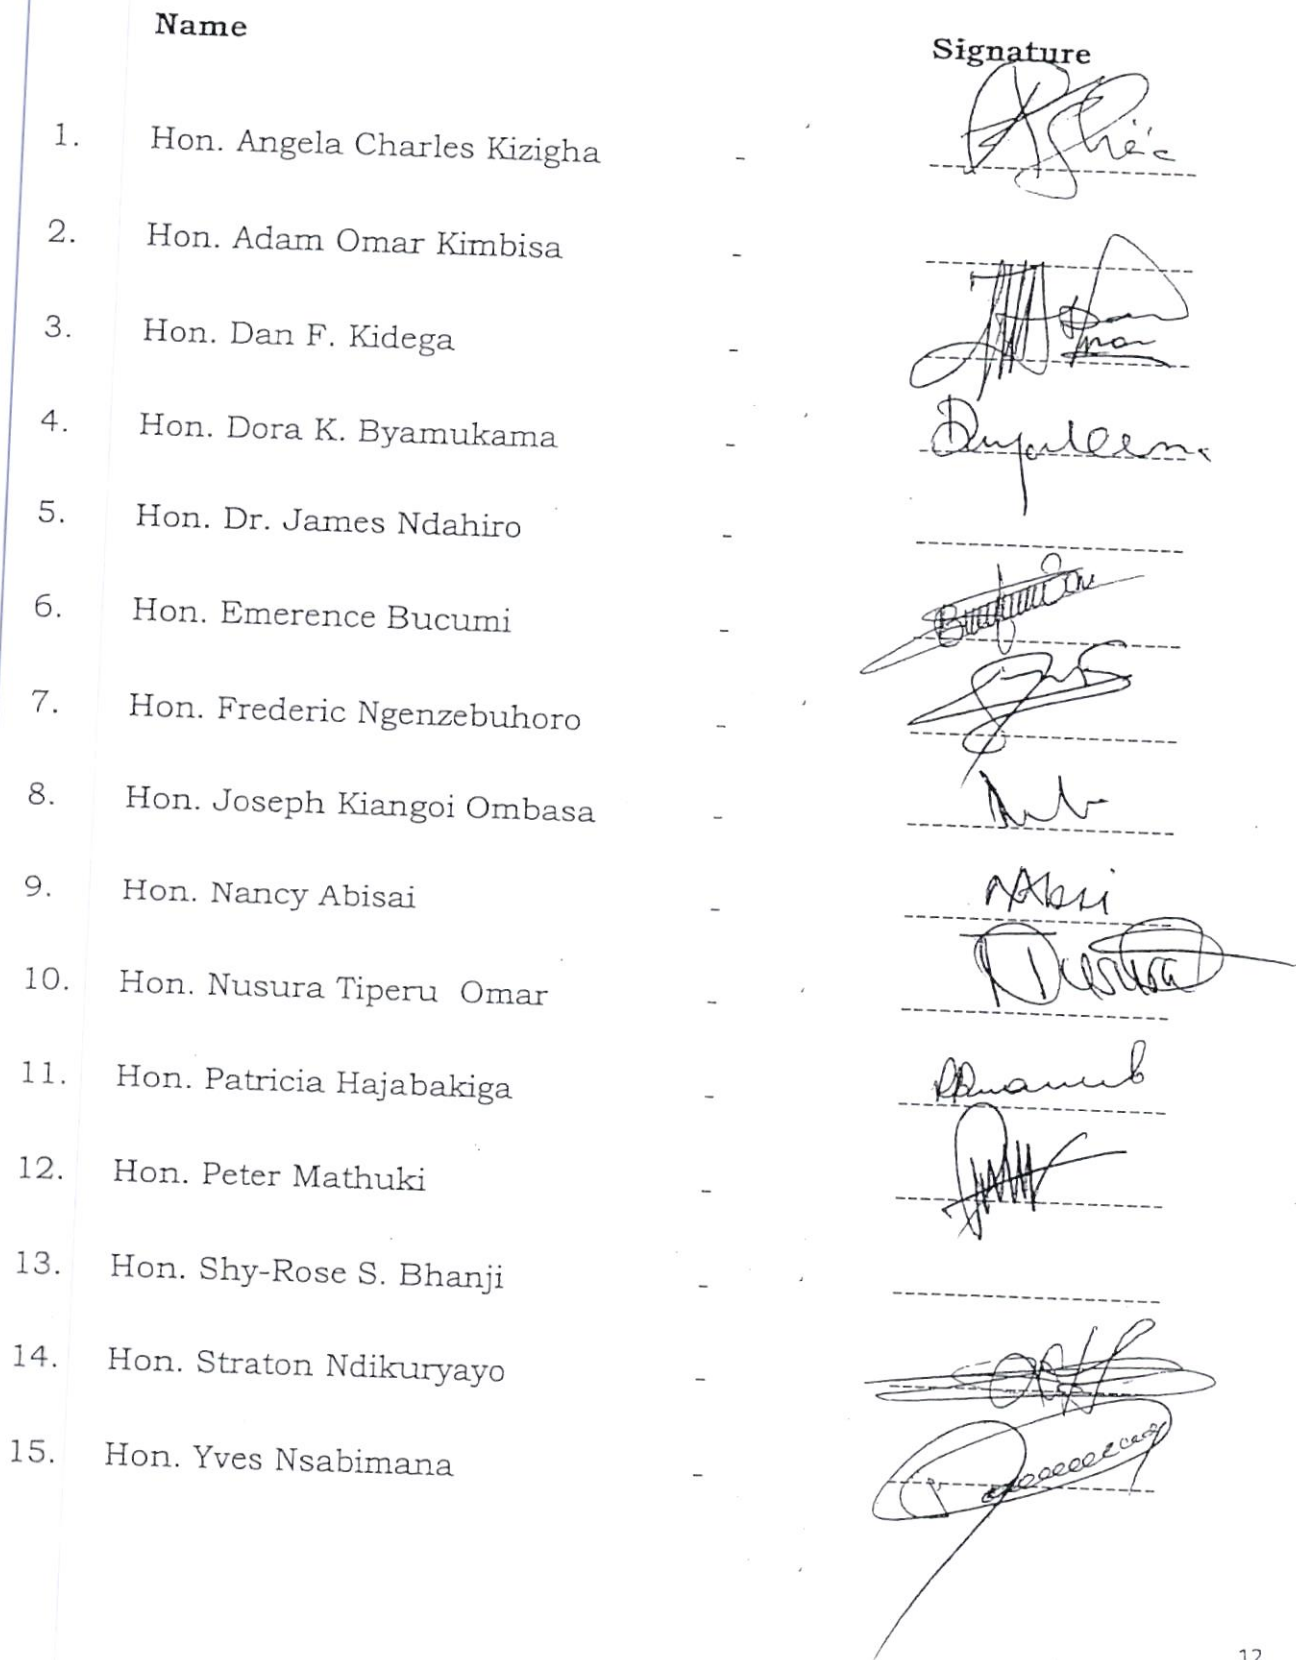 Name Signature
1. Hon. Angela Charles Kizigha -
2. Hon. Adam Omar Kimbisa -
3. Hon. Dan F. Kidega -
4. Hon. Dora K. Byamukama -
5. Hon. Dr. James Ndahiro -
6. Hon. Emerence Bucumi -
7. Hon. Frederic Ngenzebuhoro -
8. Hon. Joseph Kiangoi Ombasa -
9. Hon. Nancy Abisai -
10. Hon. Nusura Tiperu Omar - Nusura
11. Hon. Patricia Hajabakiga -
12. Hon. Peter Mathuki -
13. Hon. Shy-Rose S. Bhanji -
14. Hon. Straton Ndikuryayo -
15. Hon. Yves Nsabimana -
12